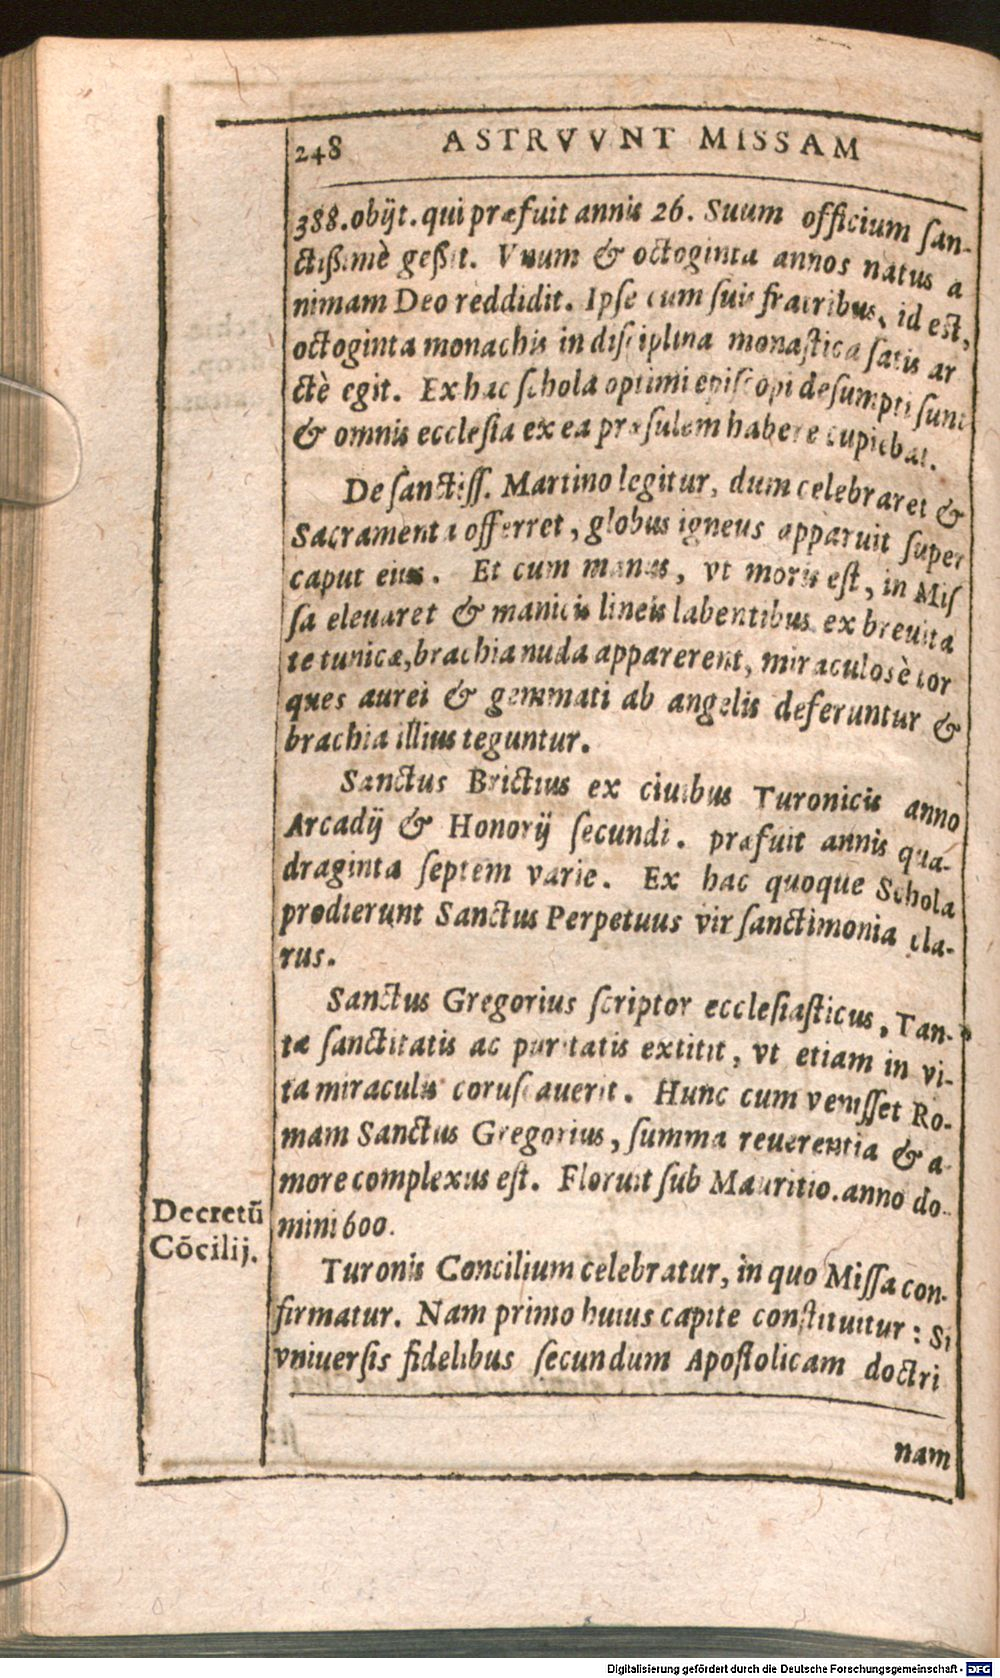 248 ASTRVVNT MISSAM
388. obijt. qui præfuit annis 26. Suum officium ſan-
ctißimè geßit. Vnum & octoginta annos natus a
nimam Deo reddidit. Ipſe cum ſuis fratribus, id eſt,
octoginta monachis in diſciplina monaſtica ſatis ar
ctè egit. Ex hac ſchola optimi epiſcopi deſumpti ſunt
& omnis eccleſia ex ea præſulem habere cupiebat.
De ſanctiſſ. Martino legitur, dum celebraret &
Sacramenta offerret, globus igneus apparuit ſuper
caput eius. Et cum manus, vt moris eſt, in Miſ
ſa eleuaret & manicis lineis labentibus ex breuita
te tunicæ, brachia nuda apparerent, miraculosè tor
ques aurei & gemmati ab angelis deferuntur &
brachia illius teguntur.
Sanctus Brictius ex ciuibus Turonicis anno
Arcadij & Honorij ſecundi. præfuit annis qua-
draginta ſeptem varie. Ex hac quoque Schola
prodierunt Sanctus Perpetuus vir ſanctimonia cla-
rus.
Sanctus Gregorius ſcriptor eccleſiaſticus, Tan-
tæ ſanctitatis ac puritatis extitit, vt etiam in vi-
ta miraculis coruſcauerit. Hunc cum veniſſet Ro-
mam Sanctus Gregorius, ſumma reuerentia & a-
more complexus eſt. Floruit ſub Mauritio. anno do-
mini 600.
Decretũ
Cõcilij.
Turonis Concilium celebratur, in quo Miſſa con-
firmatur. Nam primo huius capite conſtituitur: Si
vniuerſis fidelibus ſecundum Apoſtolicam doctri
nam
Digitalisierung gefördert durch die Deutsche Forschungsgemeinschaft - DFG